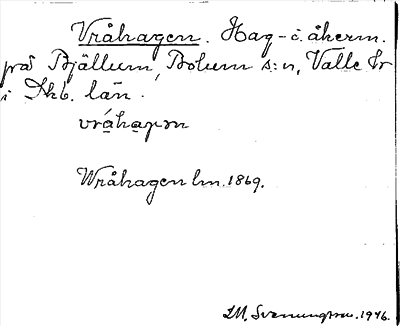 Vråhagen. Hag- o. åkerm.
på Bjällum, Bolum s:n, Valle hr
i Skb. län.
vrá̱ha̱gən
Wråhagen lm. 1869.
I.M. Svennungsson. 1946.